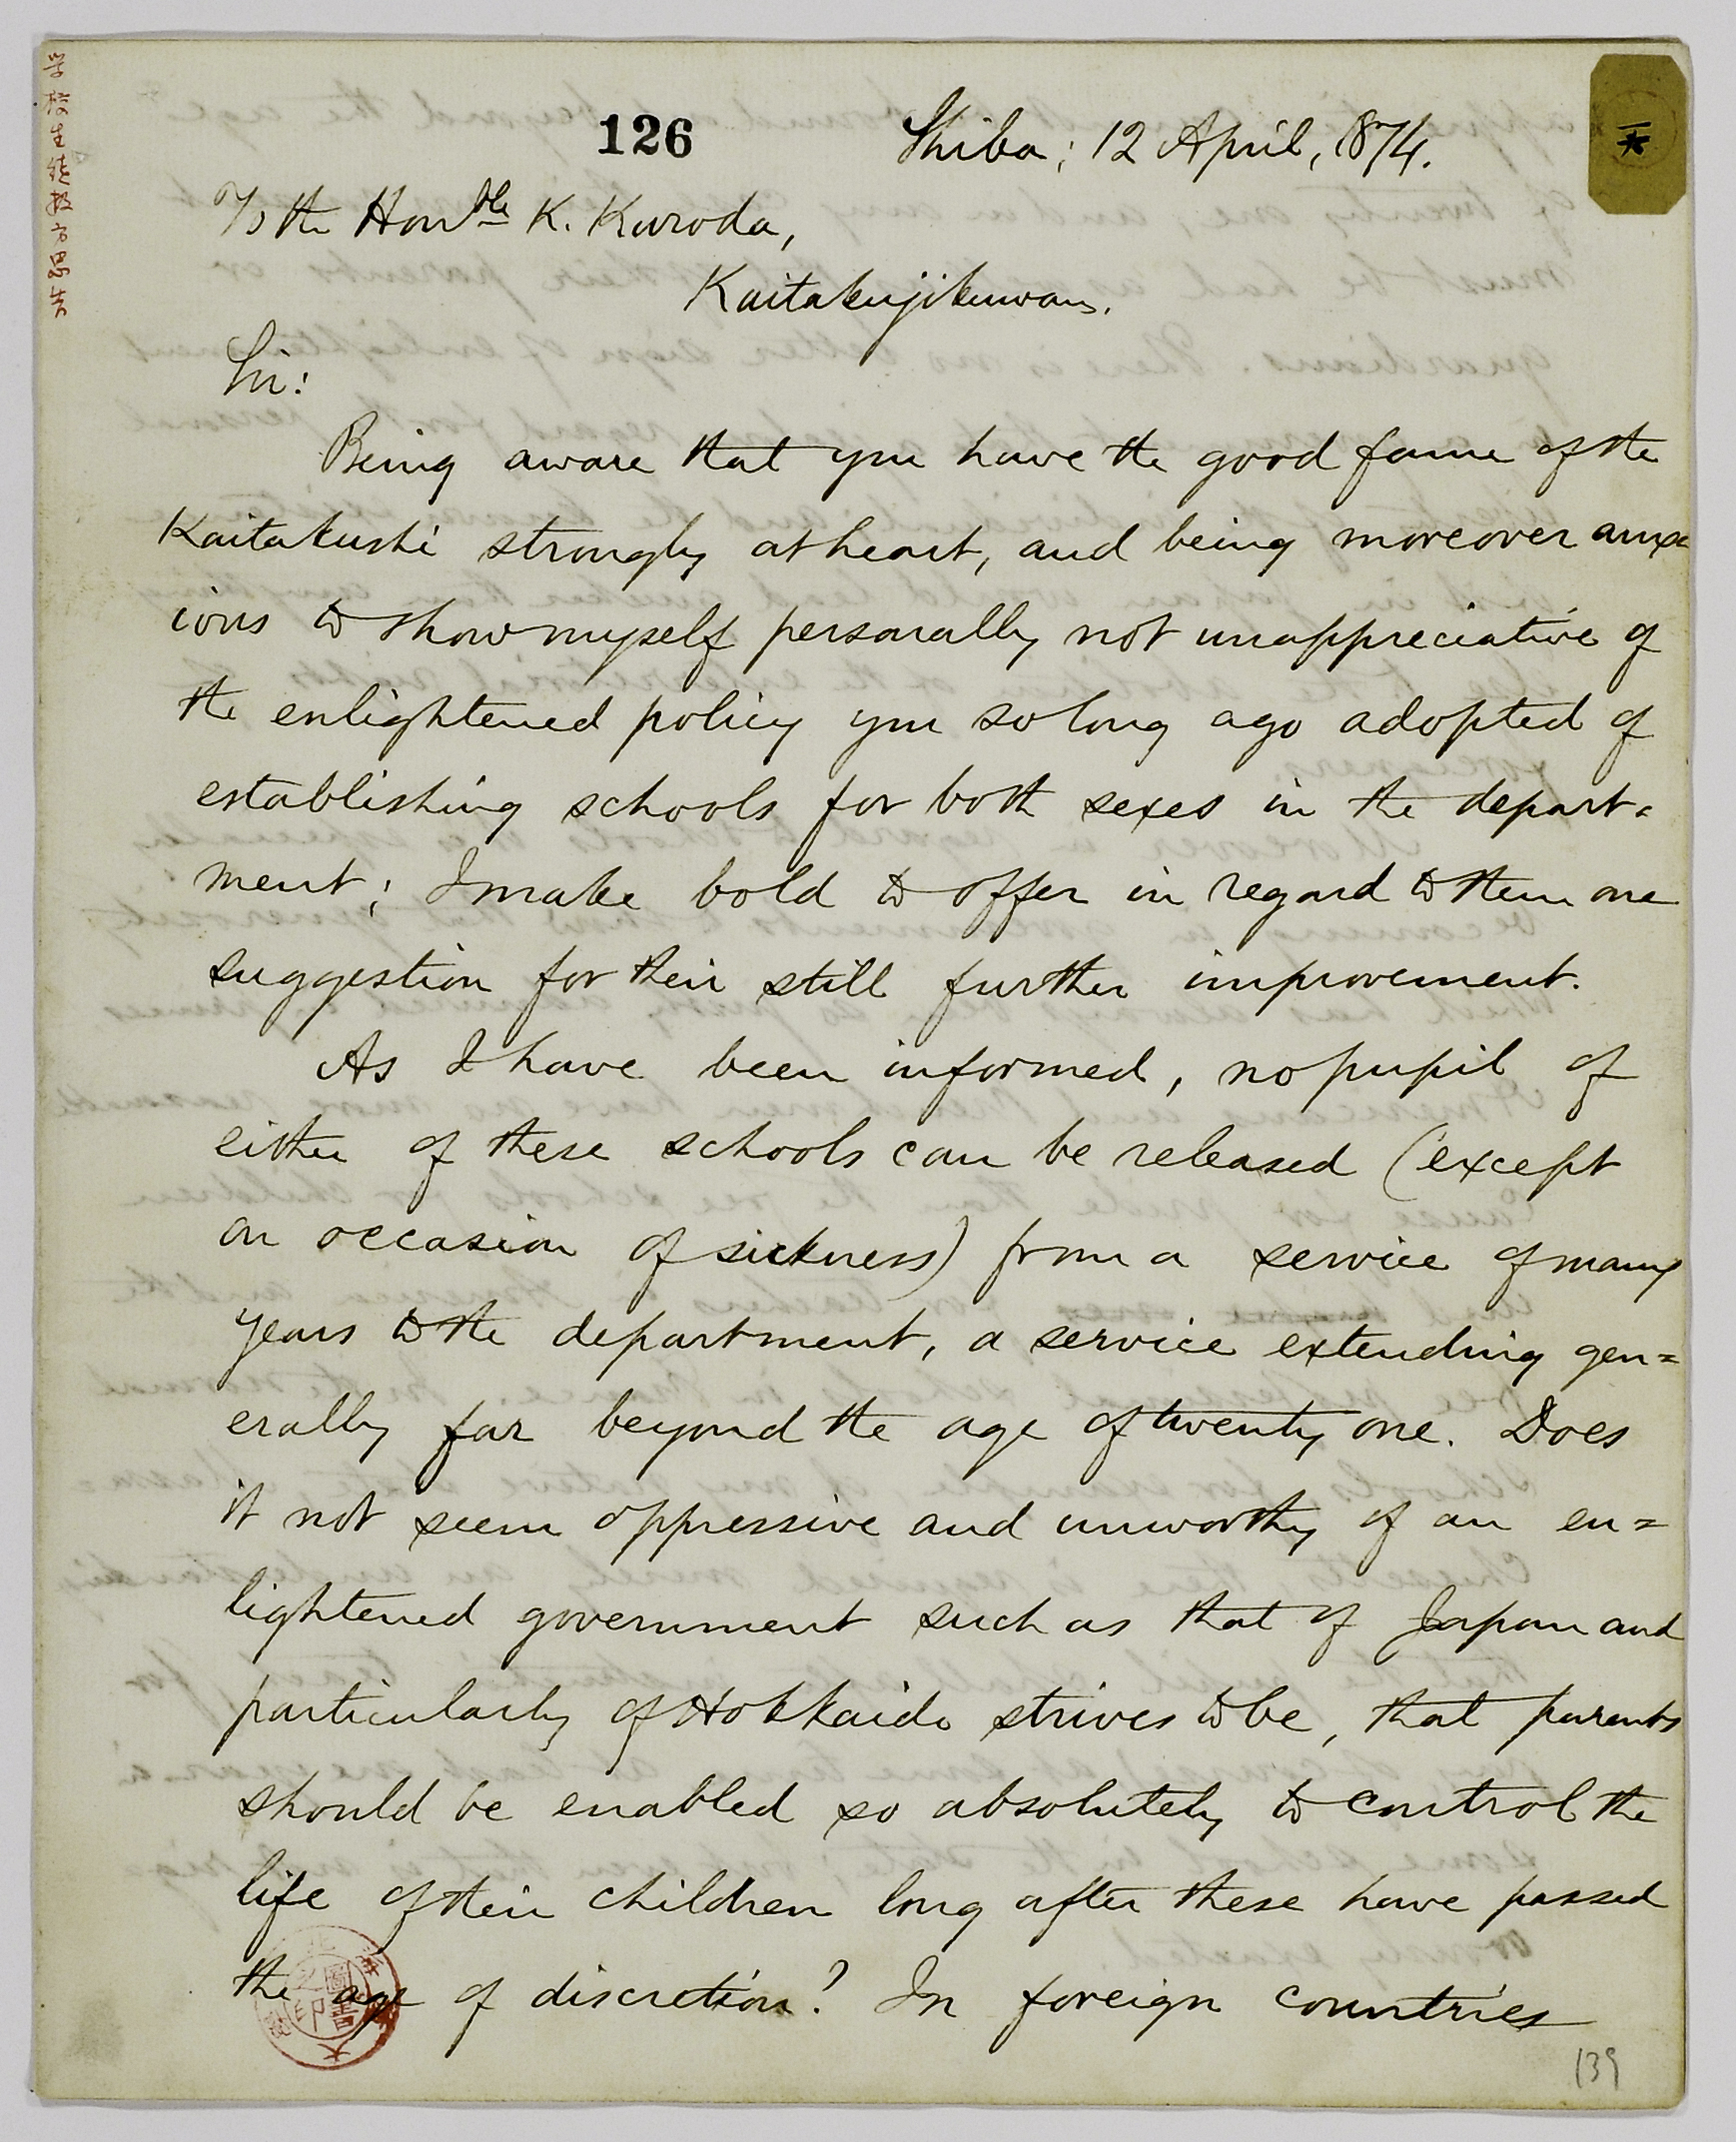 126
Shiba; 12 April, 1874.
To the Hon'ble K. Kuroda,
Kaitakujikuwan.
Sir:
Being aware that you have the good fame of the
Kaitakushi strongly at heart, and being moreover anx=
ious to show myself personally not unappreciative of
the enlightened policy you so long ago adopted of
establishing schools for both sexes in the depart=
ment; I make bold to offer in regard to them one
suggestion for their still further improvement.
As I have been informed, no pupil of
either of these schools can be released (except
on occasion of sickness) from a service of many
years to the department, a service extending gen=
erally far beyond the age of twenty one. Does
it not seem oppressive and unworthy of an en=
lightened government such as that of Japan and
particularly of Hokkaido strives to be, that parents
should be enabled so absolutely to control the
life of their children long after these have passed
the age of discretion? In foreign countries
139
学校生徒扱方